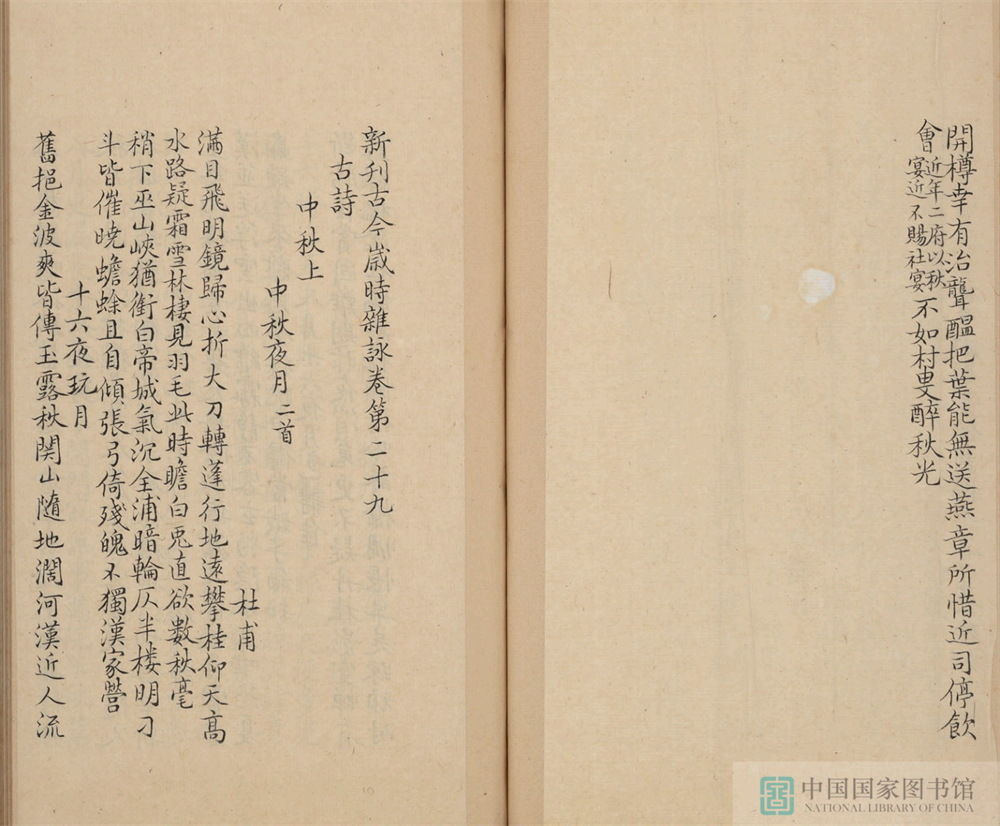 開樽幸有治聾醖把葉能無送燕章所惜近司停飲
會近年二府以秋宴近不賜社宴不如村叟醉秋光
新刊古今嵗時雜詠卷第二十九
古詩
中秋上
中秋夜月二首
杜甫
滿目飛明鏡歸心折大刀轉蓬行地遠攀桂仰天髙
水路疑霜雪林棲見羽毛此時瞻白兎直欲數秋毫
稍下巫山峽猶銜白帝城氣沉全浦暗輪仄半楼明刁
斗皆催曉蟾蜍且自傾張弓倚殘魄不獨漢家營
十六夜玩月
舊挹金波爽皆傳玉露秋関山隨地濶河漢近人流
中国国家图书馆
NATIONAL LIBRARY OF CHINA